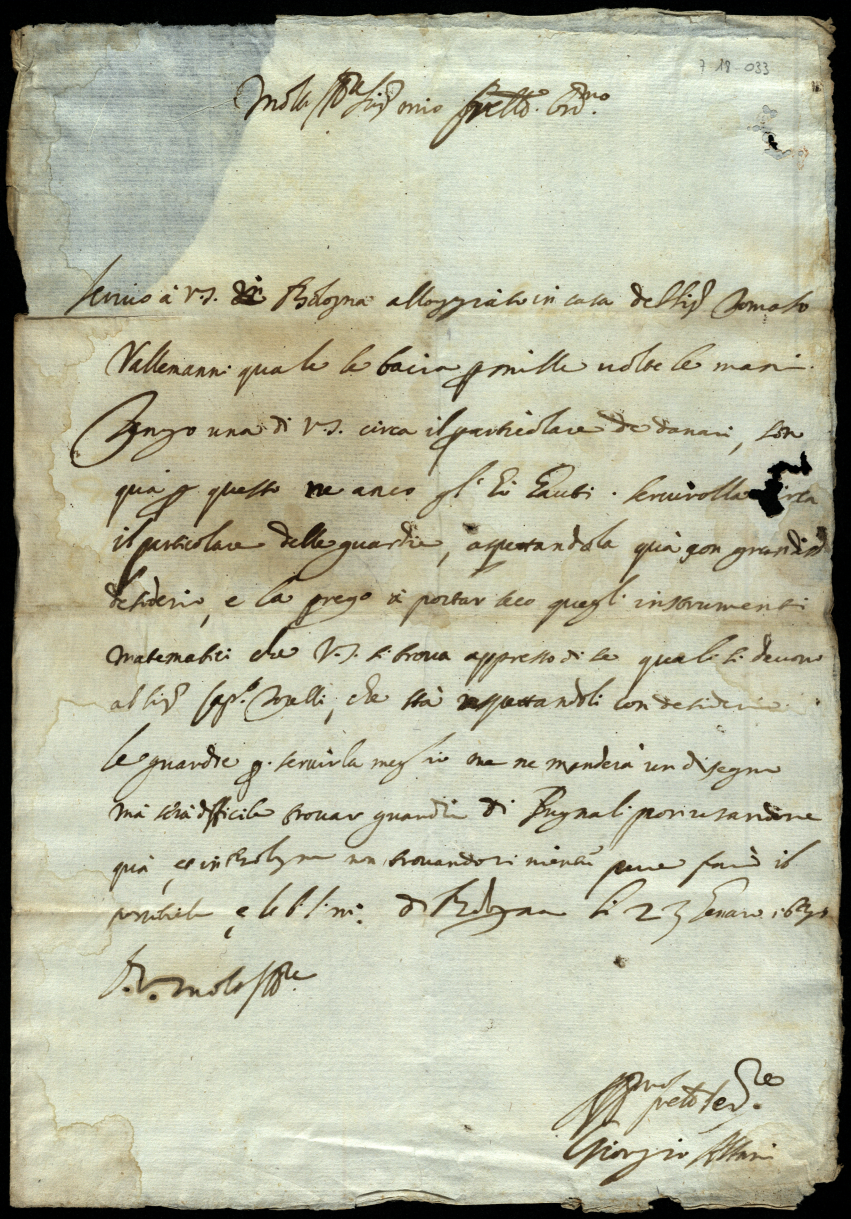 7 18-033
Molto Ill.re Sig.r mio fratello
scrivo à V.S. di Bologna alloggiato in casa del Sig.r Tomaso
Vallemanni quale le bacia p mille uolte le mani.
Tengo una di V.S. circa il particolare de danari, son
quà p questo ne anco gl' hò hauti. Seruirolla circa
il particolare delle guardie, aspettandola quà con grandis.
desiderio, e la prego à portar seco quegli instrumenti
matematici che V.S. si troua appresso di se quali si deuono
al Sig.r Cap.o che stà aspettandoli con desiderio
le guardie p seruirla meglio me ne manderà un disegno
mà serà difficile trouar guardie di Pugnali non usandone
quà, et in Bologna non trouandosi niente pure farò il
possibile e le b. l. m.i di Bologna li 23 Genaro
D.V.S. molto Ill.re
fratello Ser.re
Giorgio